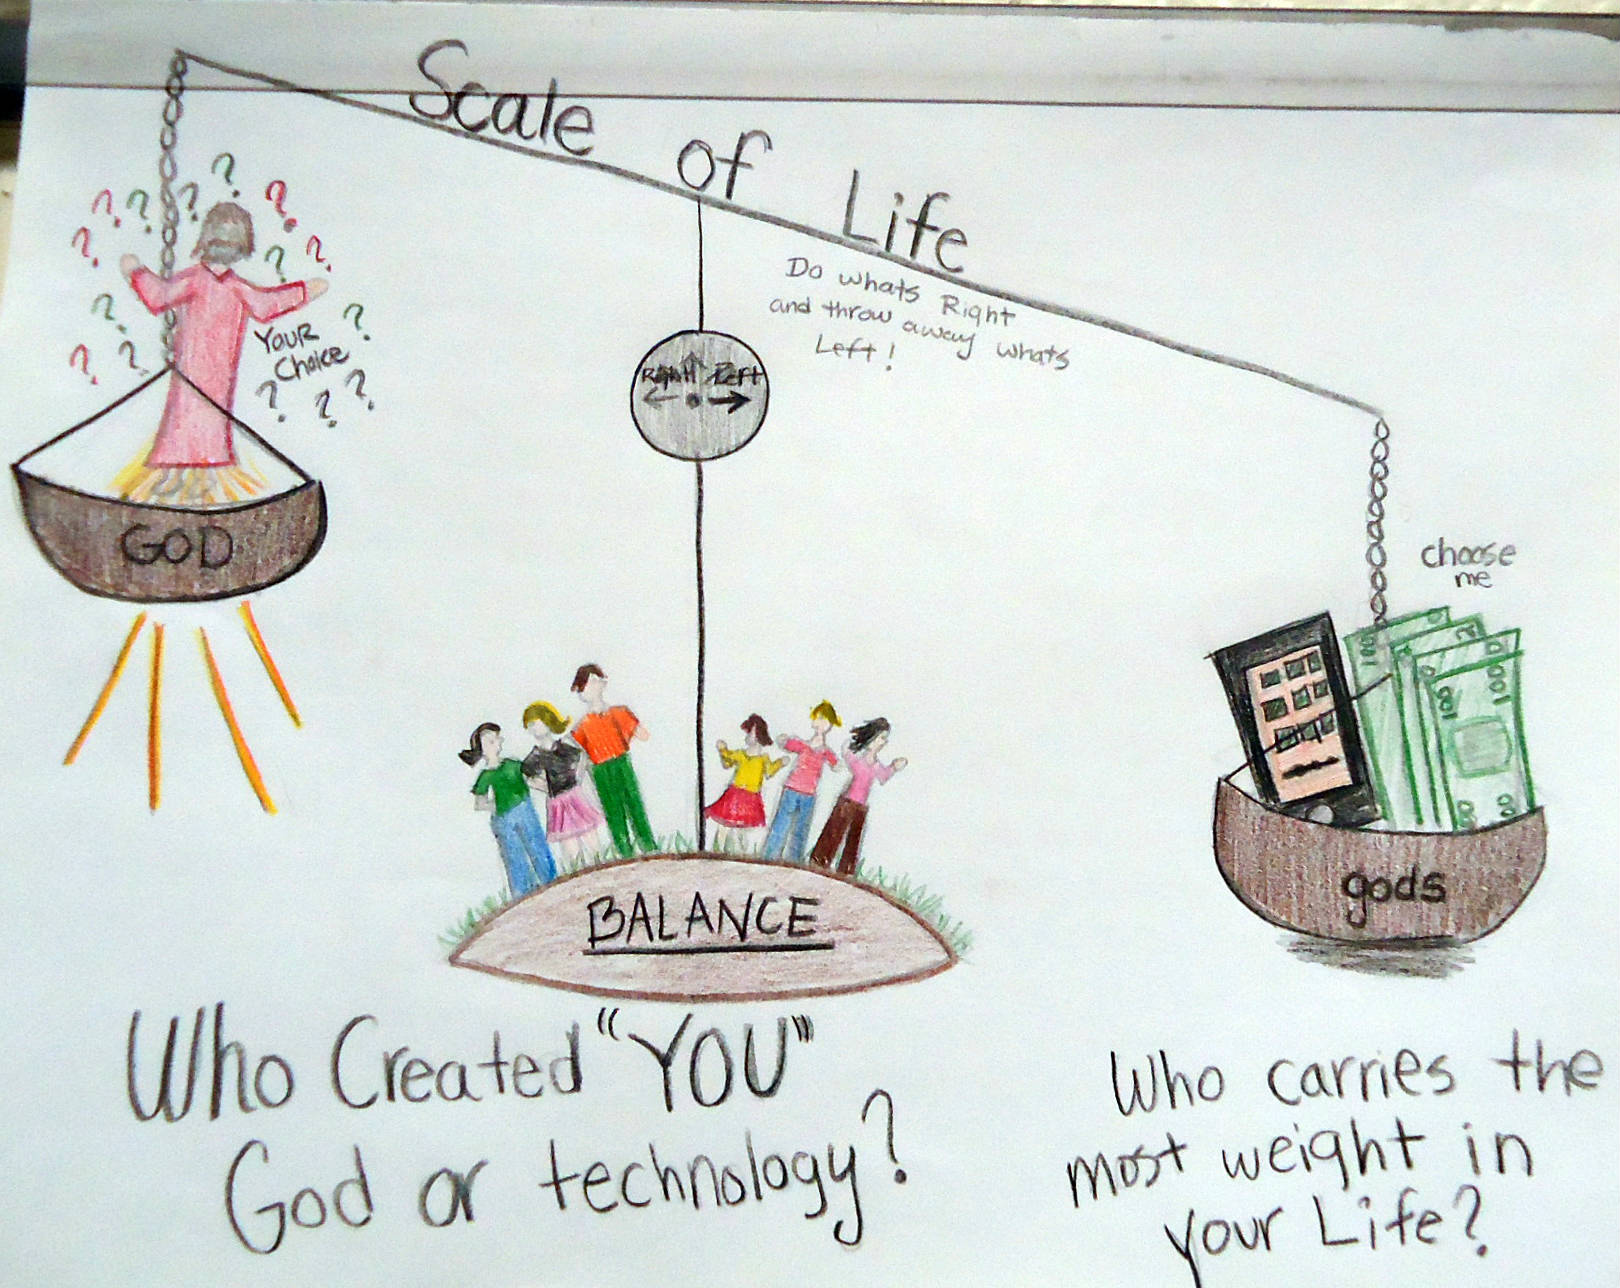 Scale of Life
Do whats Right
and throw away whats
Left!
? ? ? ? ? ? ? ? ? ? ? ? ? ? ? ?
YOUR
Choice
Right Left
GOD
choose
me
100 100 100
gods
BALANCE
Who Created "YOU"
God or technology?
Who carries the
most weight in
your Life?